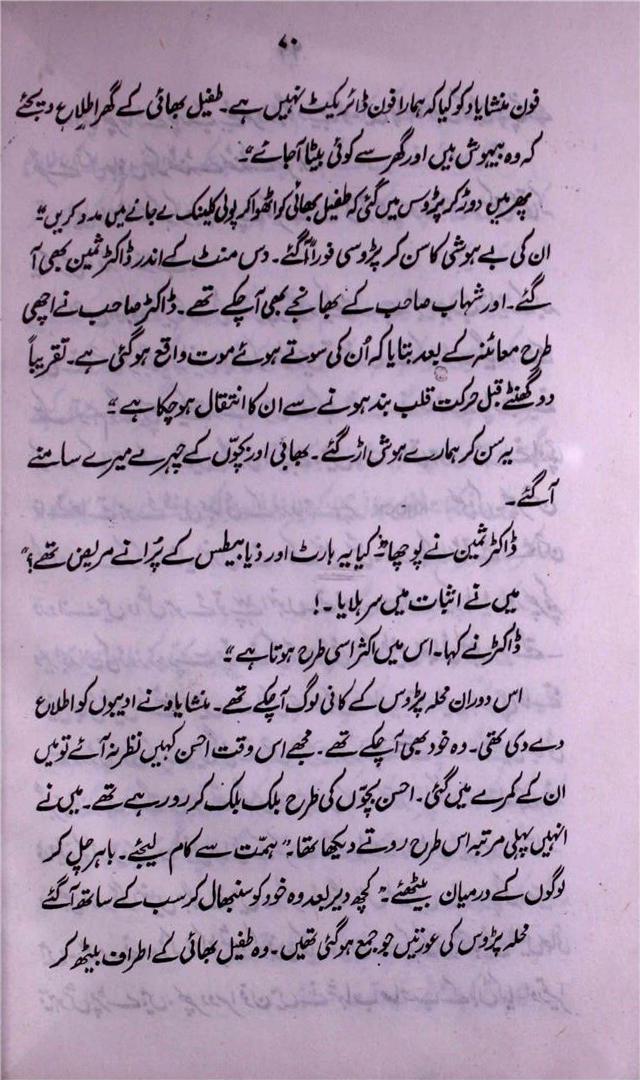 ۷۰
فون منشایاد کو کیا کہ ہمارا فون ڈائریکٹ نہیں ہے۔ طفیل بھائی کے گھر اطلاع دیجئے
کہ وہ بیہوش ہیں اور گھر سے کوئی بیٹا آجائے"۔
پھر میں دوڑ کر پڑوس میں گئی کہ طفیل بھائی کو اٹھوا کر پولی کلینک لے جانے میں مدد کریں"
ان کی بے ہوشی کا سن کر پڑوسی فوراً آگئے۔ دس منٹ کے اندر ڈاکٹر ثمین بھی آ
گئے۔ اور شہاب صاحب کے بھانجے بھی آچکے تھے۔ ڈاکٹر صاحب نے اچھی
طرح معائنہ کے بعد بتایا کہ اُن کی سوتے ہوئے موت واقع ہوگئی ہے۔ تقریباً
دو گھنٹے قبل حرکت قلب بند ہونے سے ان کا انتقال ہوچکا ہے"۔
یہ سن کر ہمارے ہوش اڑ گئے۔ بھابی اور بچوّں کے چہرے میرے سامنے
آگئے۔
ڈاکٹر ثمین نے پوچھا" کیا یہ ہارٹ اور ذیابیطس کے پُرانے مریض تھے؟"
میں نے اثبات میں سر ہلایا۔!
ڈاکٹر نے کہا۔ اس میں اکثر اسی طرح ہوتا ہے"۔
اس دوران محلہ پڑوس کے کافی لوگ آچکے تھے۔ منشایاد نے ادیبوں کو اطلاع
دے دی تھی۔ وہ خود بھی آچکے تھے۔ مجھے اس وقت احسن کہیں نظر نہ آئے تو میں
ان کے کمرے میں گئی۔ احسن بچوّں کی طرح بلک بلک کر رو رہے تھے۔ میں نے
انہیں پہلی مرتبہ اس طرح روتے دیکھا تھا۔" ہمّت سے کام لیجئے۔ باہر چل کر
لوگوں کے درمیان بیٹھئے۔" کچھ دیر بعد وہ خود کو سنبھال کر سب کے ساتھ آگئے
محلہ پڑوس کی عورتیں جو جمع ہوگئی تھیں۔ وہ طفیل بھائی کے اطراف بیٹھ کر